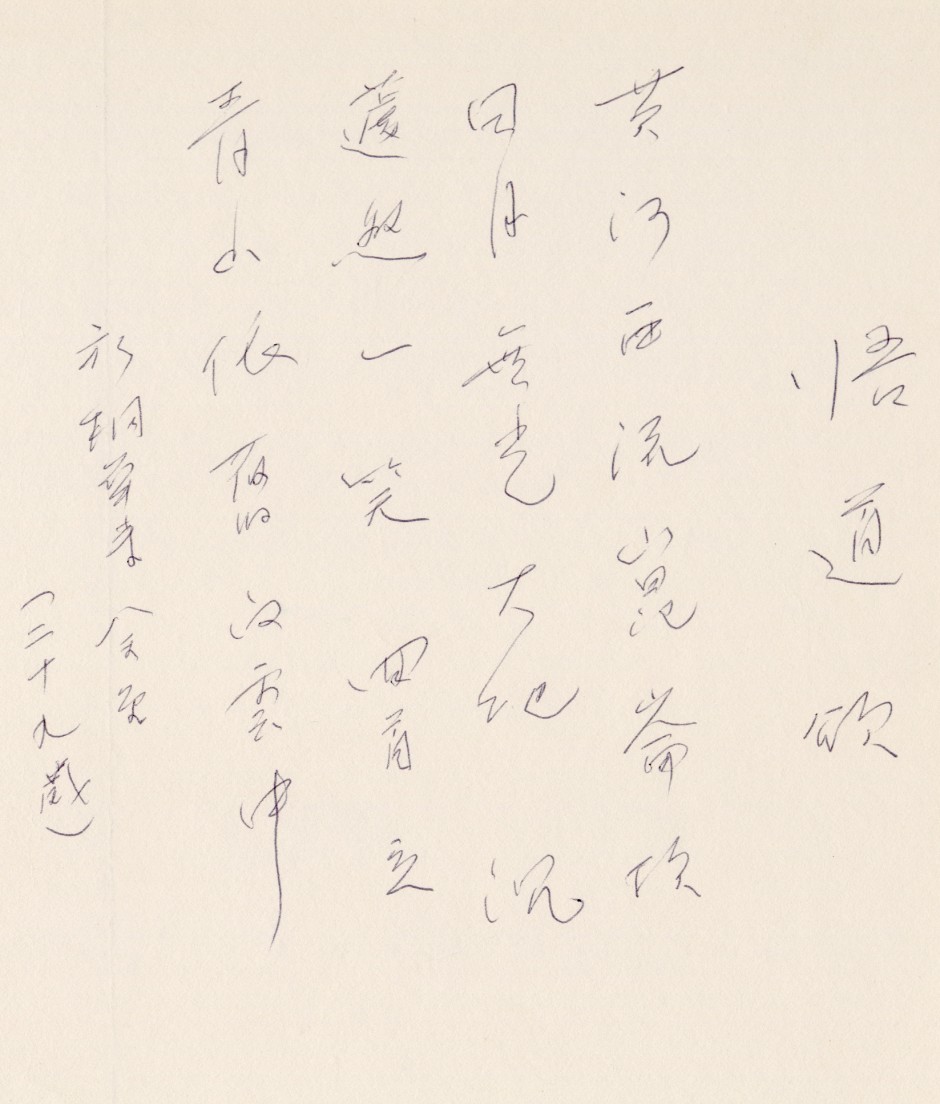 悟道頌
黄河西流崑崙頂
日月無光大地沉
遽然一笑回首立
青山依舊白雲中
於桐華寺 金堂
(二十九歲)